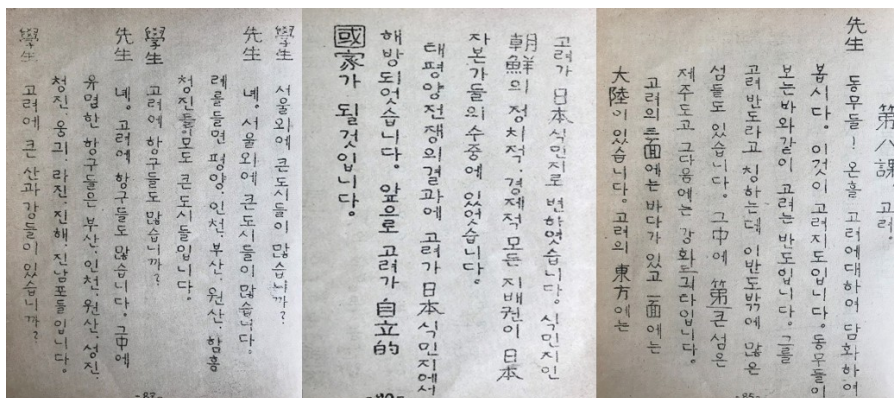 第八課 고려.
先生 동무들! 온흘 고려에대하여 담화하여
봅시다. 이것이 고려지도입니다. 동무들이
보는바와같이 고려는 반도입니다. 그를
고려반도라고 칭하는데 이반도밖에 많은
섬들도 있습니다. 그中에 第큰섬은
제주도고 그다음에는
고려의 三面에는 바다가 있고 一面에는
大陸이 있습니다. 고려의 東方에는
-85-
고려가 日本식민지로 변하엿습니다. 식민지인
朝鮮의 정치적, 경제적 모든 지배권이 日本
자본가들의 수중에 있었습니다.
태평양전쟁의결과에 고려가 日本식민지에서
해방되었습니다. 앞으로 고려가 自立的
國家가 될것입니다.
學生 서울외에 큰도시들이 많습니까?
先生 녜. 서울외에 큰도시들이 많습니다.
례를들면 평양, 인천, 부산, 원산, 함흥
청진들모도 큰도시들입니다.
學生 고려에 항구들도 많습니까?
先生 녜. 고려에 항구들도 많습니다. 그中에
유명한 항구들은 부산, 인천, 원산, 성진,
청진, 웅긔, 라진, 진해, 진남포들입니다.
學生 고려에 큰 산과 강들이 있습니까?